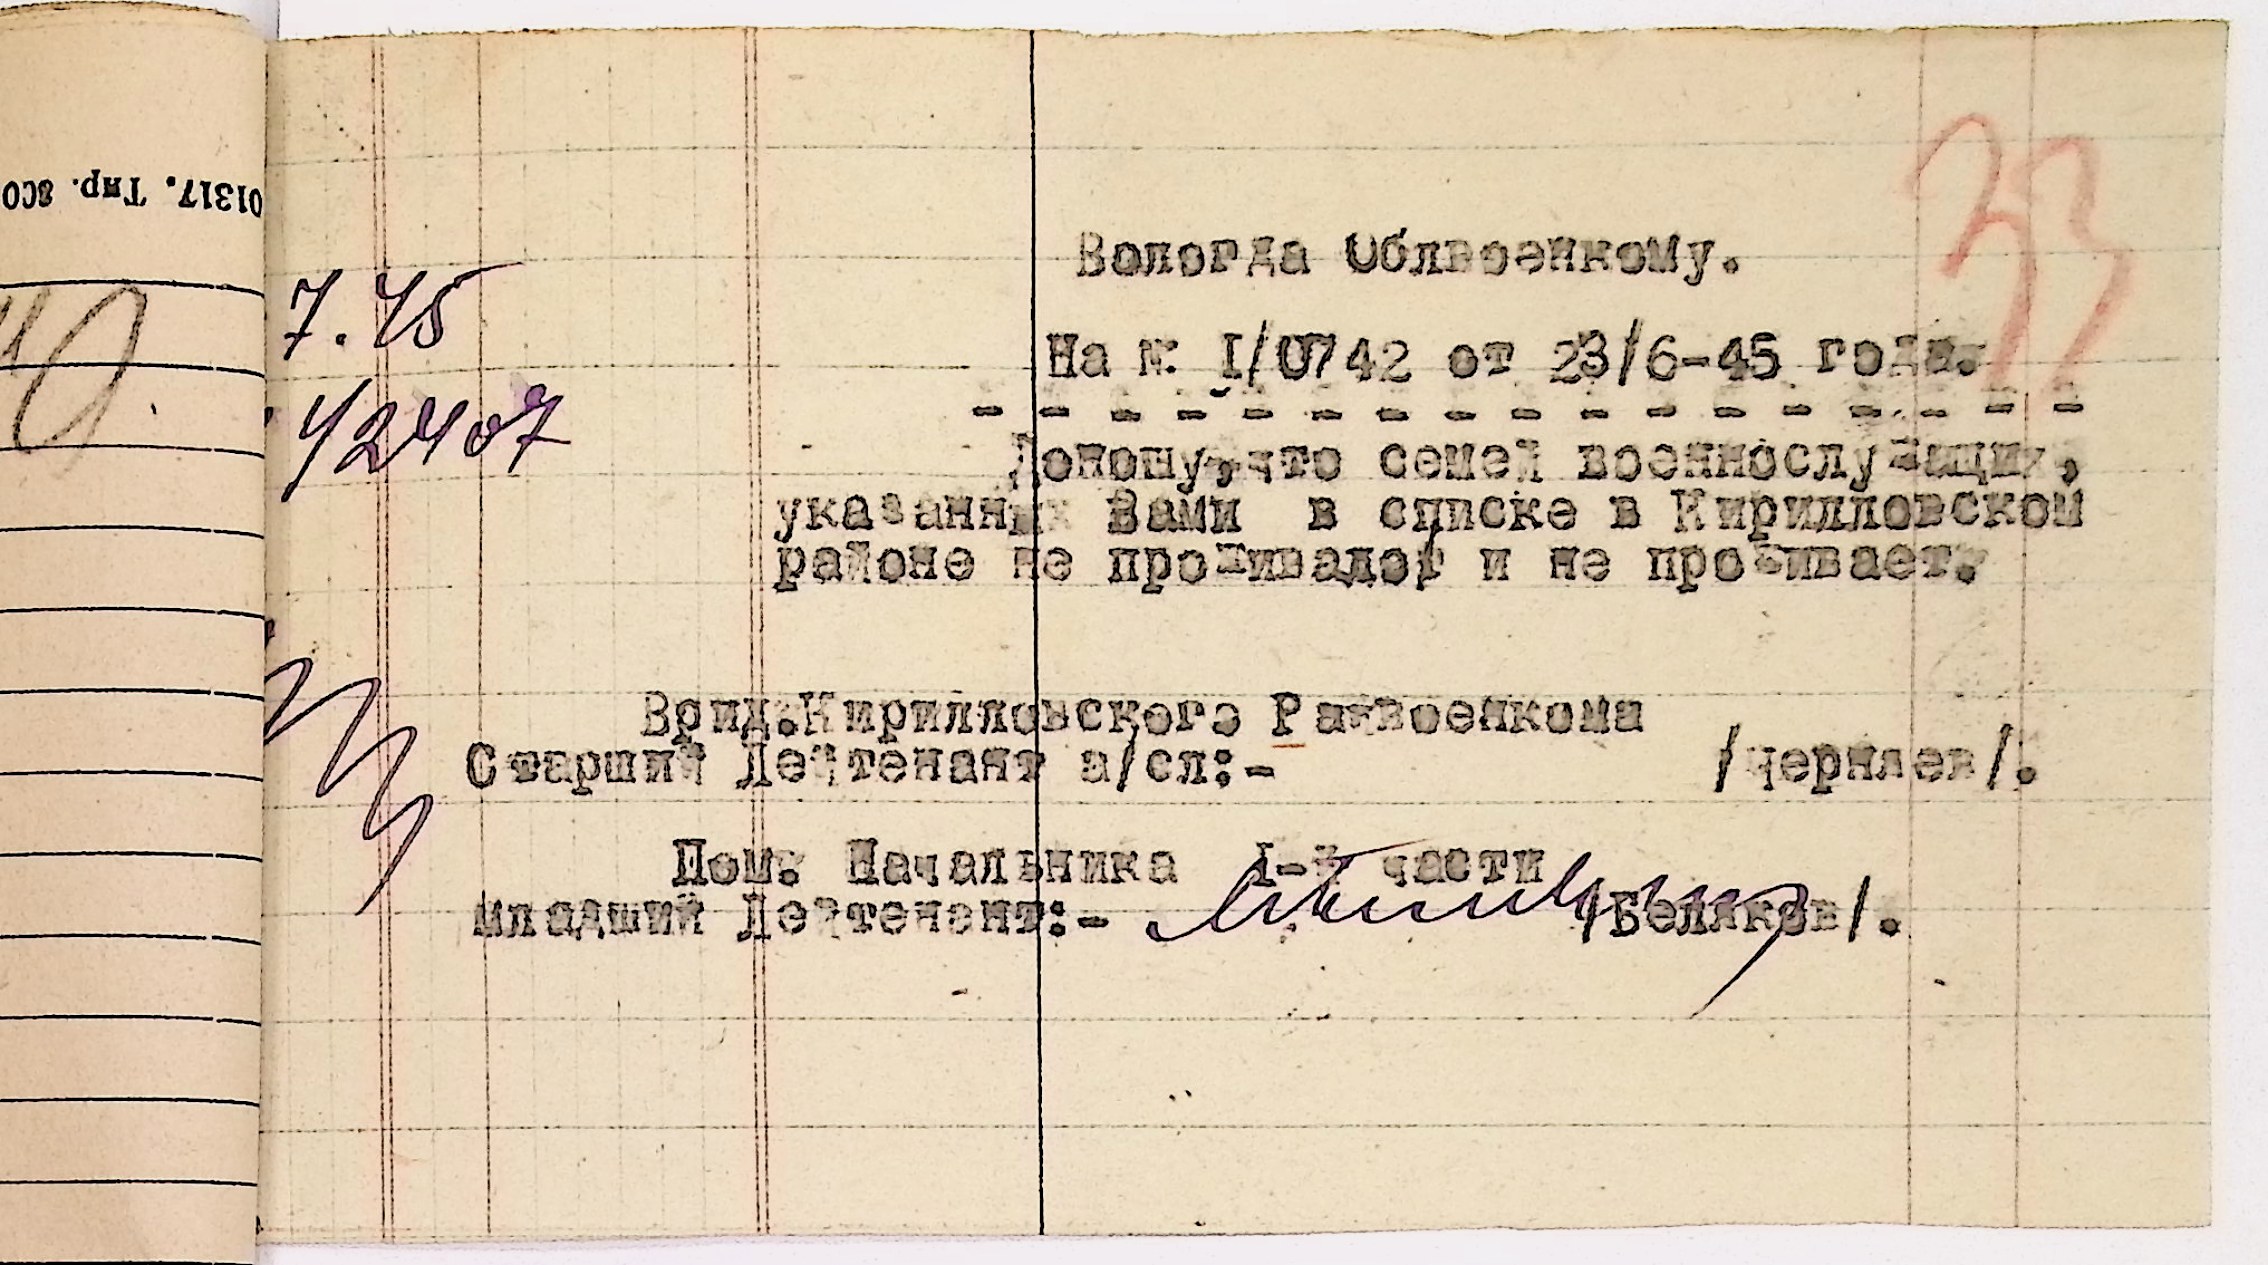 01317. Тир. 800
33
7.45
42407
Вологда Облвоенкому.
На №: I/0742 от 23/6-45 года.
- - - - - - - - - - - - - - - - -
Доношу, что семей военнослужащих,
указанных Вами в списке в Кирилловской
районе не проживалог и не проживает.
Врид.Кирилловского Райвоенкома
Старший Лейтенант а/сл:- /черняев/.
Пом: Начальника I-й части
младший Лейтенант:- /Беляков/.